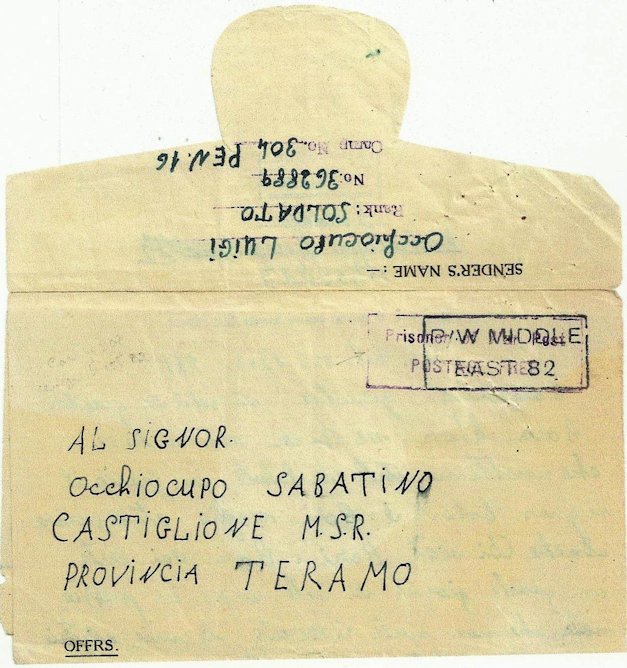 SENDER'S NAME : —
Occhiocupo LUIGI
Rank: SOLDATO
No. 362889
Camp No. 304 PEN. 16
Prisoner of War Post
P/W MIDDLE
EAST 82
AL SIGNOR.
Occhiocupo SABATINO
CASTIGLIONE M.S.R.
PROVINCIA TERAMO
OFFRS.